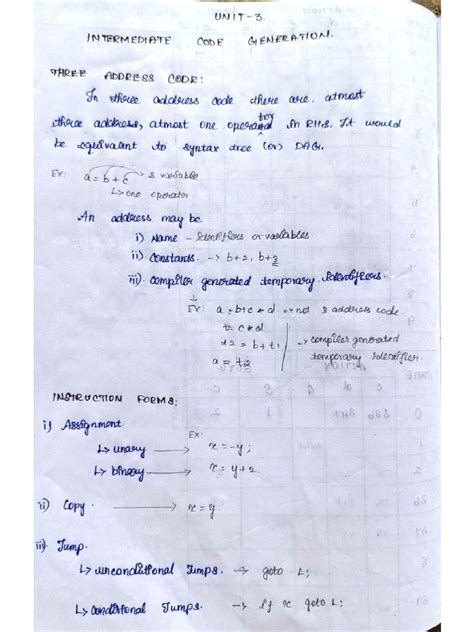 UNIT-3.
INTERMEDIATE CODE GENERATION.
THREE ADDRESS CODE:
In three address code there are, atmost
three address, atmost one operator in RHS. It would
be equivalent to syntax tree (or) DAG.
Ex: a = b + c → 3 variable
↳ one operator
An address may be
i) Name - Identifiers or variables
ii) Constants. → b+2, b+3
iii). Compiler generated temporary Identifiers.
↓
EX: a = b+c * d → not 3 address code.
t1 = c * d
t2 = b + t1 → compiler generated
a = t2 temporary identifier.
INSTRUCTION FORMS:
i) Assignment Ex:
↳ unary → x = -y;
↳ binary → x = y+2.
ii) Copy → x = y
iii) Jump.
↳ unconditional Jumps. → goto L;
↳ conditional Jumps. → If x goto L;